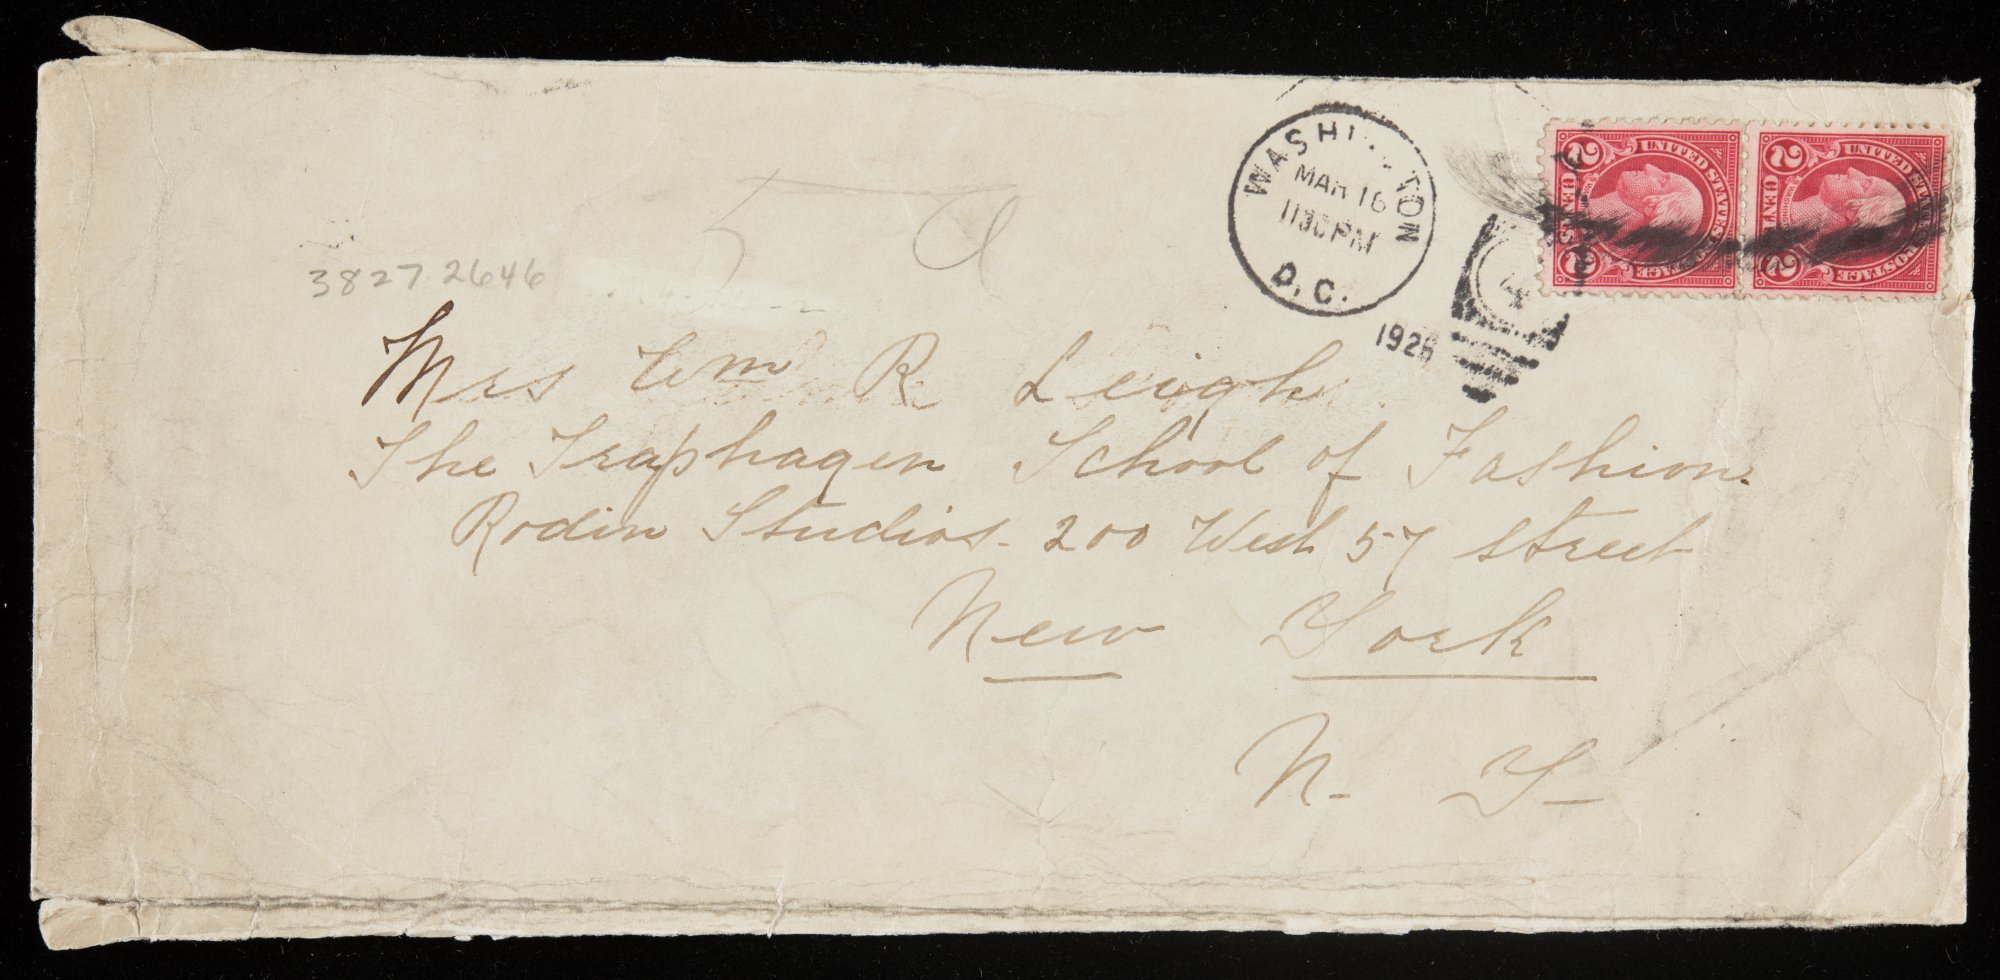 WASHI TON
MAR 16
1130 PM
D. C.
UNITED STATES POSTAGE
2 CENTS 2
UNITED STATES POSTAGE
2 CENTS 2
4
3827.2646
Mrs Wm R Leigh
The Traphagen School of Fashion.
Rodin Studios - 200 West 57 street
New York
N. Y.